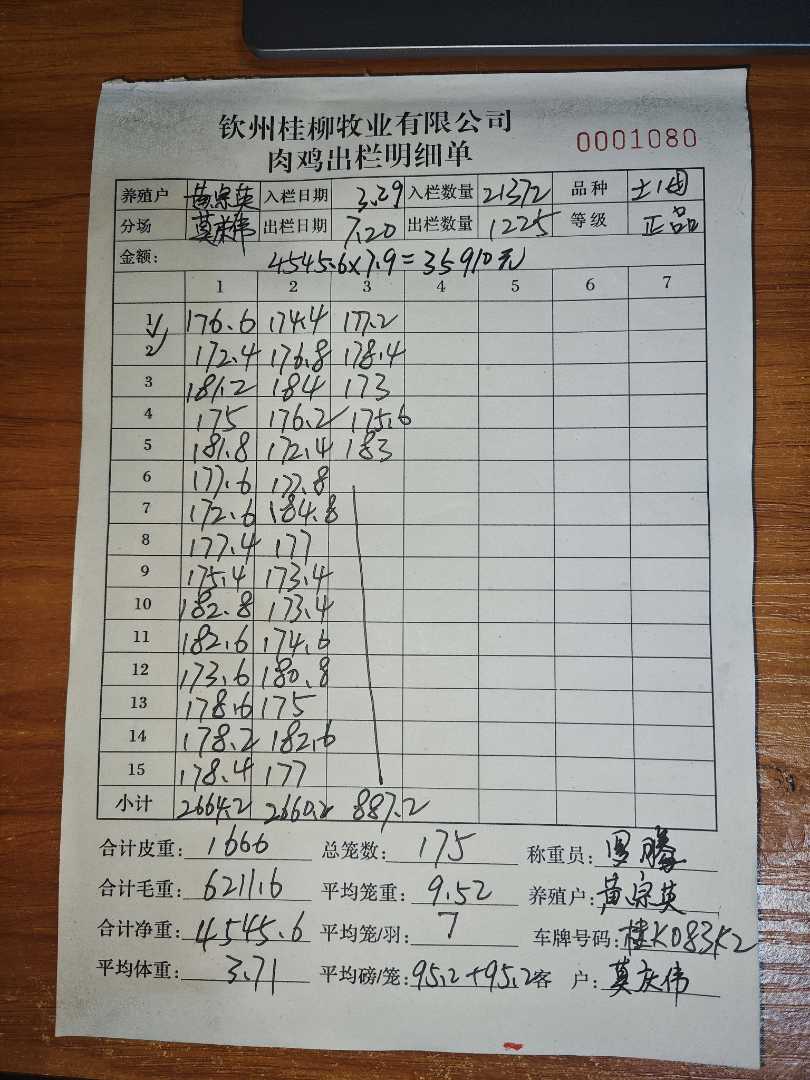 钦州桂柳牧业有限公司
肉鸡出栏明细单
0001080
养殖户 黄宗英 入栏日期 3.29 入栏数量 21372 品种 土1国
分场 莫庆伟 出栏日期 7.20 出栏数量 1225 等级 正品
金额: 4545.6×7.9=35910元
1 2 3 4 5 6 7
1 176.6 174.4 177.2
2 172.4 176.8 178.4
3 181.2 184 173
4 175 176.2 175.6
5 181.8 172.4 183
6 177.6 177.8
7 172.6 184.8
8 177.4 177
9 175.4 173.4
10 182.8 173.4
11 182.6 174.6
12 173.6 180.8
13 178.6 175
14 178.2 182.6
15 178.4 177
小计 2664.2 2660.2 887.2
合计皮重: 1666 总笼数: 175 称重员:
合计毛重: 6211.6 平均笼重: 9.52 养殖户: 黄宗英
合计净重: 4545.6 平均笼/羽: 7 车牌号码: 桂K083K2
平均体重: 3.71 平均磅/笼: 95.2+95.2 客 户: 莫庆伟